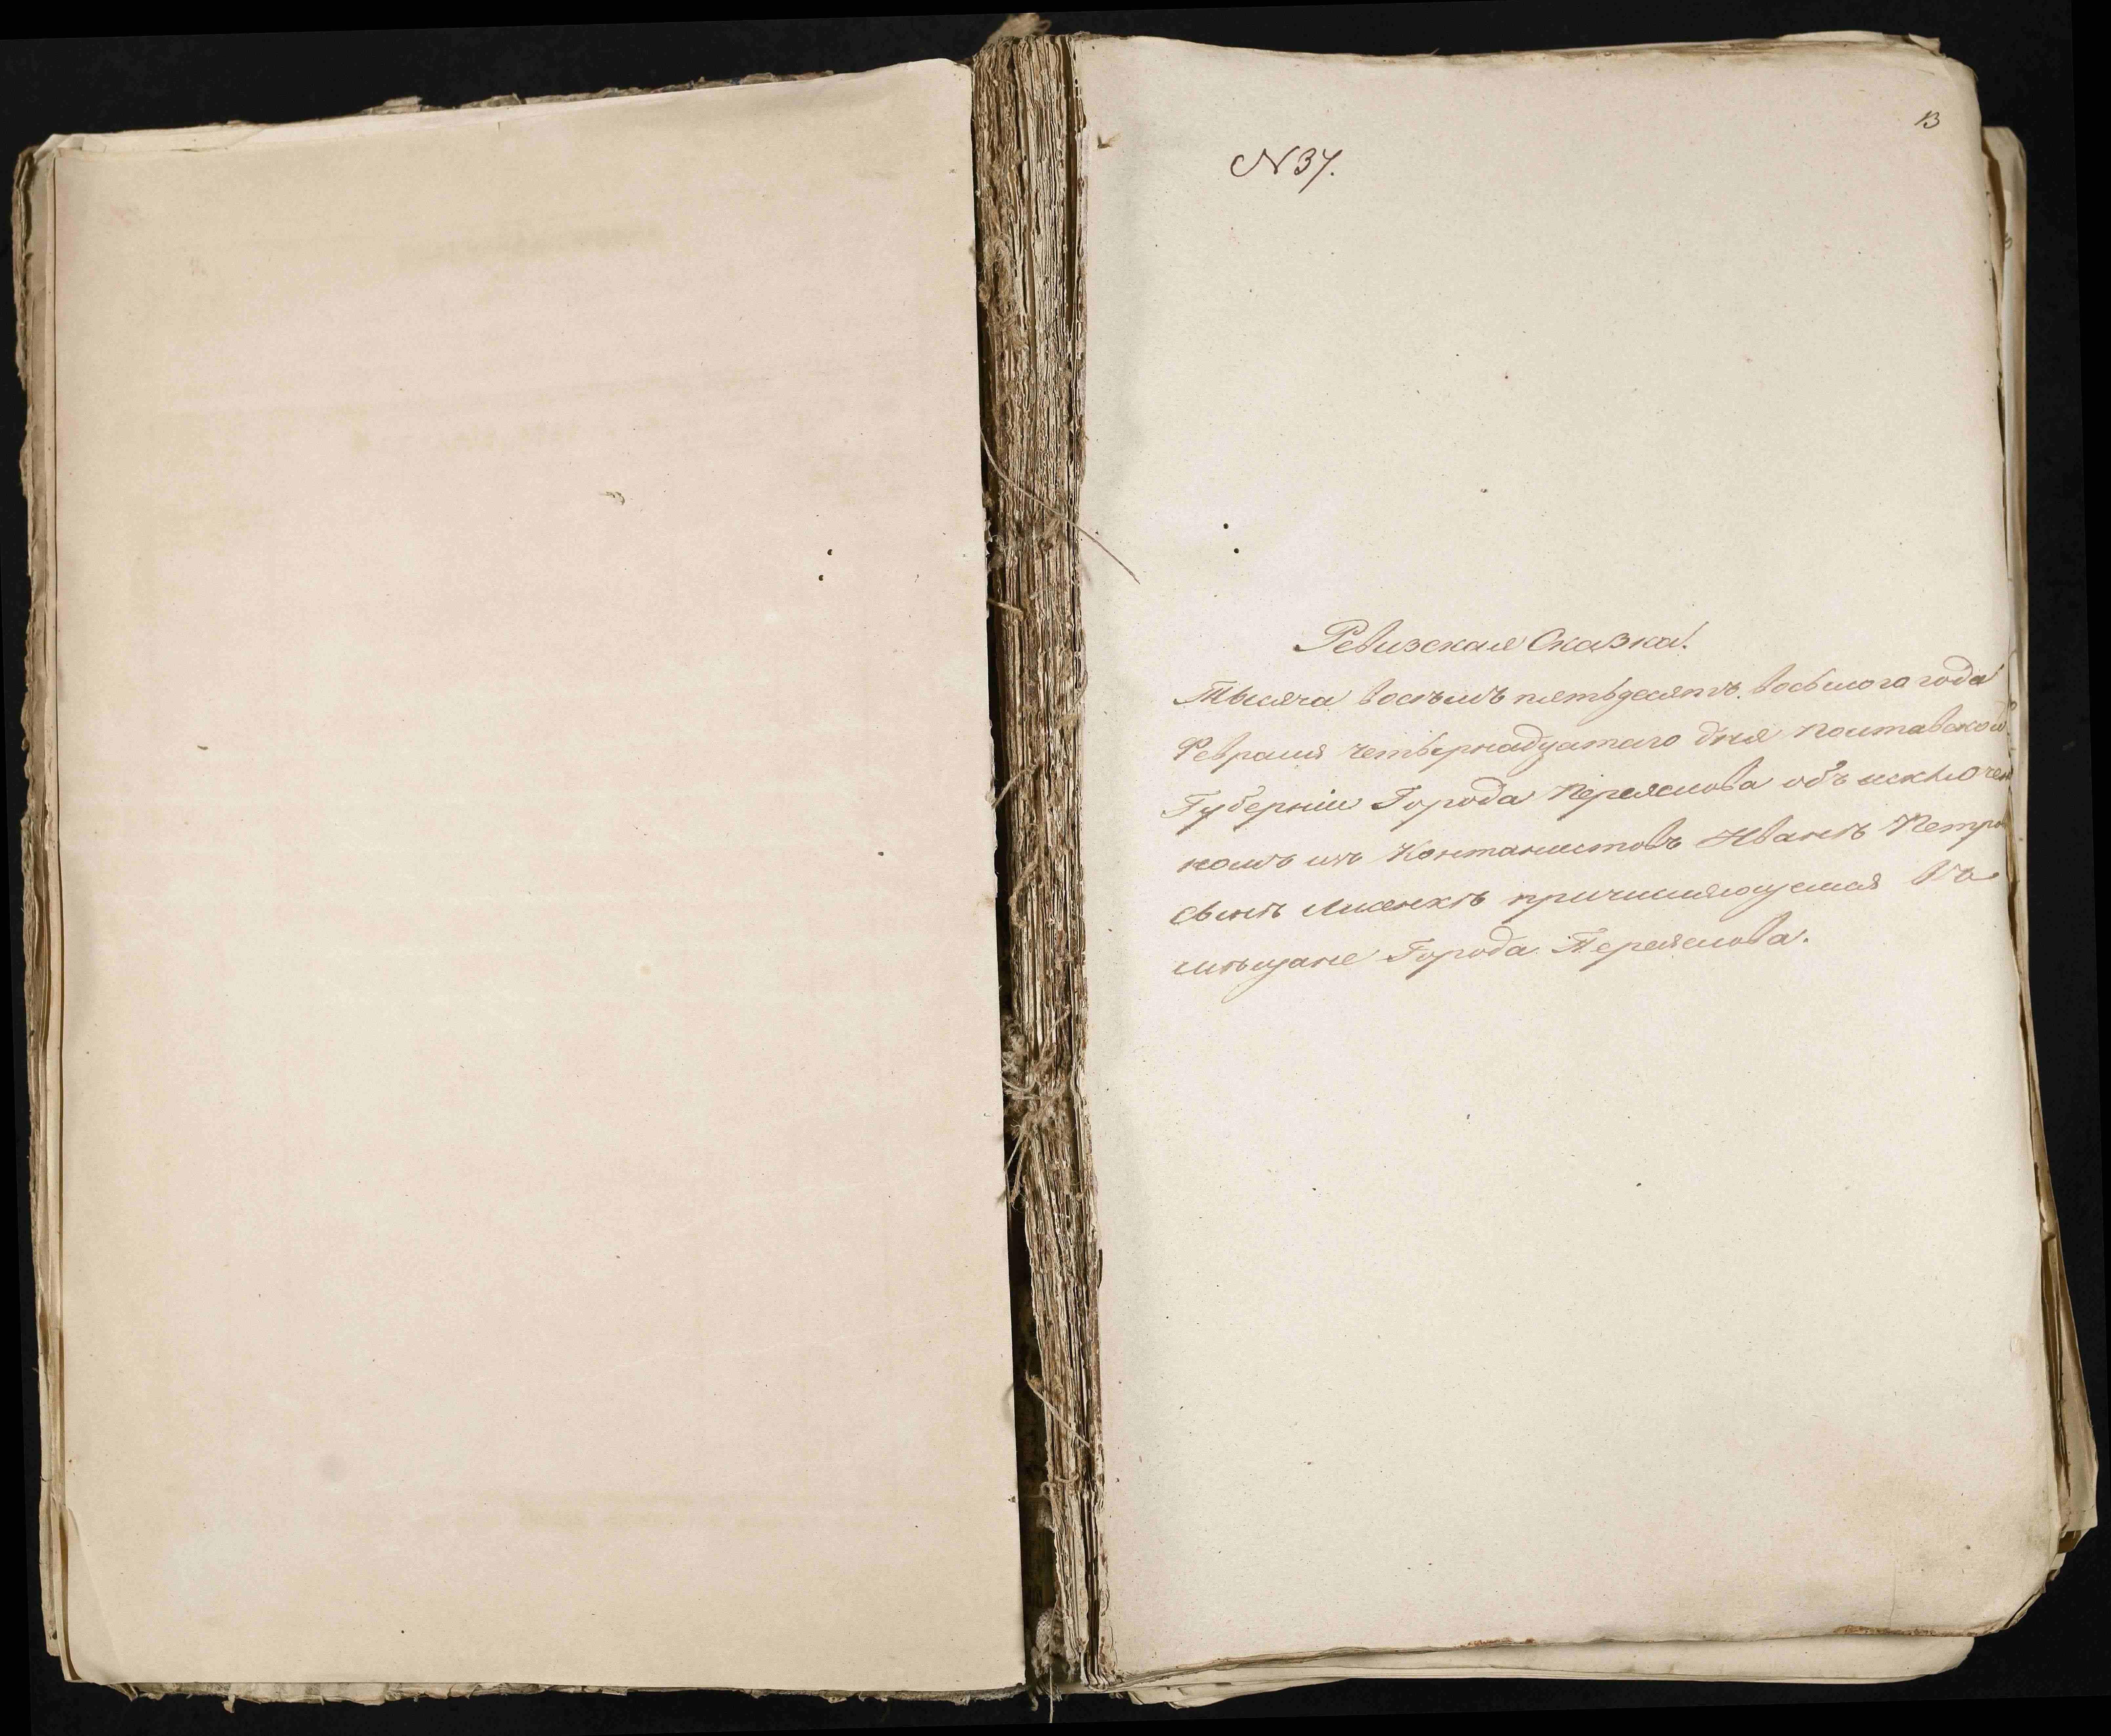 13
N 37.
Ревизская Сказка!
Тысяча восѣмъ пятьдесятъ восьмого года
Февраля четырнадцатаго дня Полтавской
Губерніи Города Переяслова объ исключен
номъ изъ Кантанистовъ Иванѣ Петро
Сынѣ причисляющемся въ
мѣщане Города Переяслова.